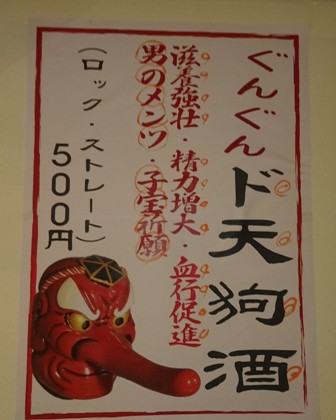 ぐんぐん
ド天狗酒
滋養強壮・精力増大・血行促進
男のメンツ・子宝祈願
(ロック・ストレート)
500円